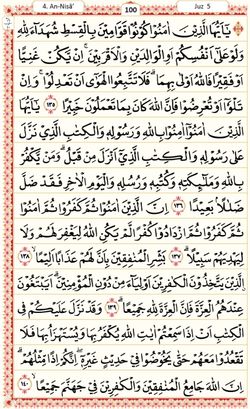 4. An-Nisā' 100 Juz 5
يٰٓاَيُّهَا الَّذِيْنَ اٰمَنُوْا كُوْنُوْا قَوَّامِيْنَ بِالْقِسْطِ شُهَدَاۤءَ لِلّٰهِ
وَلَوْ عَلٰٓى اَنْفُسِكُمْ اَوِ الْوَالِدَيْنِ وَالْاَقْرَبِيْنَ ۚ اِنْ يَّكُنْ غَنِيًّا
اَوْ فَقِيْرًا فَاللّٰهُ اَوْلٰى بِهِمَاۗ فَلَا تَتَّبِعُوا الْهَوٰٓى اَنْ تَعْدِلُوْا ۚ وَاِنْ
تَلْوٗٓا اَوْ تُعْرِضُوْا فَاِنَّ اللّٰهَ كَانَ بِمَا تَعْمَلُوْنَ خَبِيْرًا ۝١٣٥ يٰٓاَيُّهَا
الَّذِيْنَ اٰمَنُوْٓا اٰمِنُوْا بِاللّٰهِ وَرَسُوْلِهٖ وَالْكِتٰبِ الَّذِيْ نَزَّلَ
عَلٰى رَسُوْلِهٖ وَالْكِتٰبِ الَّذِيْٓ اَنْزَلَ مِنْ قَبْلُ ۗ وَمَنْ يَّكْفُرْ
بِاللّٰهِ وَمَلٰۤىِٕكَتِهٖ وَكُتُبِهٖ وَرُسُلِهٖ وَالْيَوْمِ الْاٰخِرِ فَقَدْ ضَلَّ
ضَلٰلًا ۢ بَعِيْدًا ۝١٣٦ اِنَّ الَّذِيْنَ اٰمَنُوْا ثُمَّ كَفَرُوْا ثُمَّ اٰمَنُوْا
ثُمَّ كَفَرُوْا ثُمَّ ازْدَادُوْا كُفْرًا لَّمْ يَكُنِ اللّٰهُ لِيَغْفِرَ لَهُمْ وَلَا
لِيَهْدِيَهُمْ سَبِيْلًاۗ ۝١٣٧ بَشِّرِ الْمُنٰفِقِيْنَ بِاَنَّ لَهُمْ عَذَابًا اَلِيْمًاۙ ۝١٣٨
الَّذِيْنَ يَتَّخِذُوْنَ الْكٰفِرِيْنَ اَوْلِيَاۤءَ مِنْ دُوْنِ الْمُؤْمِنِيْنَ ۗ اَيَبْتَغُوْنَ
عِنْدَهُمُ الْعِزَّةَ فَاِنَّ الْعِزَّةَ لِلّٰهِ جَمِيْعًاۗ ۝١٣٩ وَقَدْ نَزَّلَ عَلَيْكُمْ فِى
الْكِتٰبِ اَنْ اِذَا سَمِعْتُمْ اٰيٰتِ اللّٰهِ يُكْفَرُ بِهَا وَيُسْتَهْزَاُ بِهَا فَلَا
تَقْعُدُوْا مَعَهُمْ حَتّٰى يَخُوْضُوْا فِيْ حَدِيْثٍ غَيْرِهٖٓ ۖ اِنَّكُمْ اِذًا مِّثْلُهُمْ ۗ
اِنَّ اللّٰهَ جَامِعُ الْمُنٰفِقِيْنَ وَالْكٰفِرِيْنَ فِيْ جَهَنَّمَ جَمِيْعًاۙ ۝١٤٠